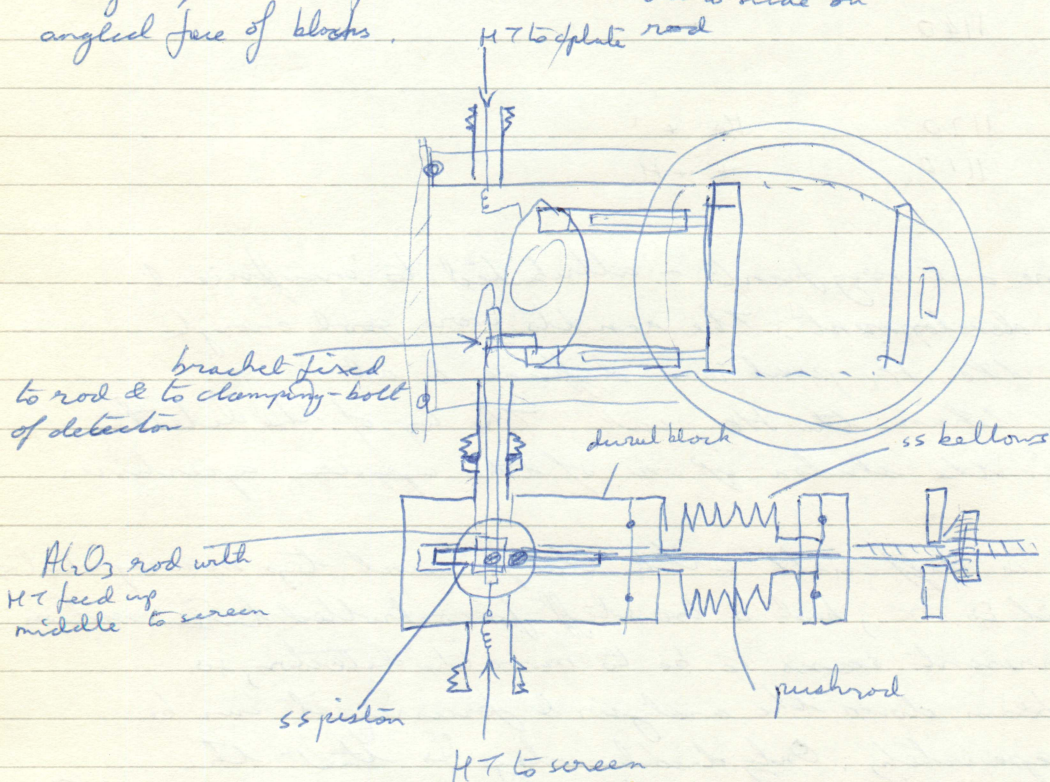 angled face of blocks.
HT to c/plate rod
bracket fixed
to rod & to clamping-bolt
of detector
dural block
ss bellows
Al2O3 rod with
HT feed up
middle to screen
ss piston
pushrod
HT to screen